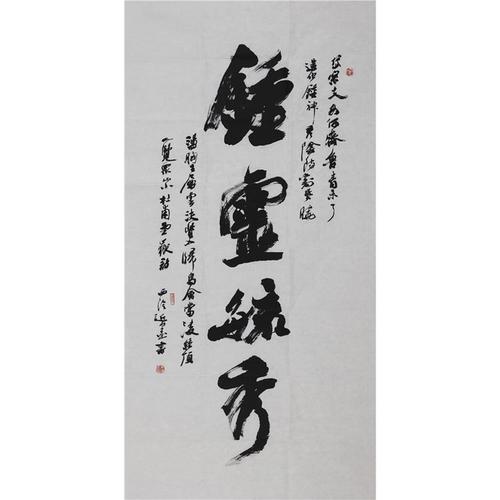 岱宗夫如何齊魯青未了
造化鍾神秀陰陽割昏曉
鍾靈毓秀
盪胸生層雲決眥入歸鳥會當凌絕頂
一覽眾山小杜甫望嶽詩
西泠書